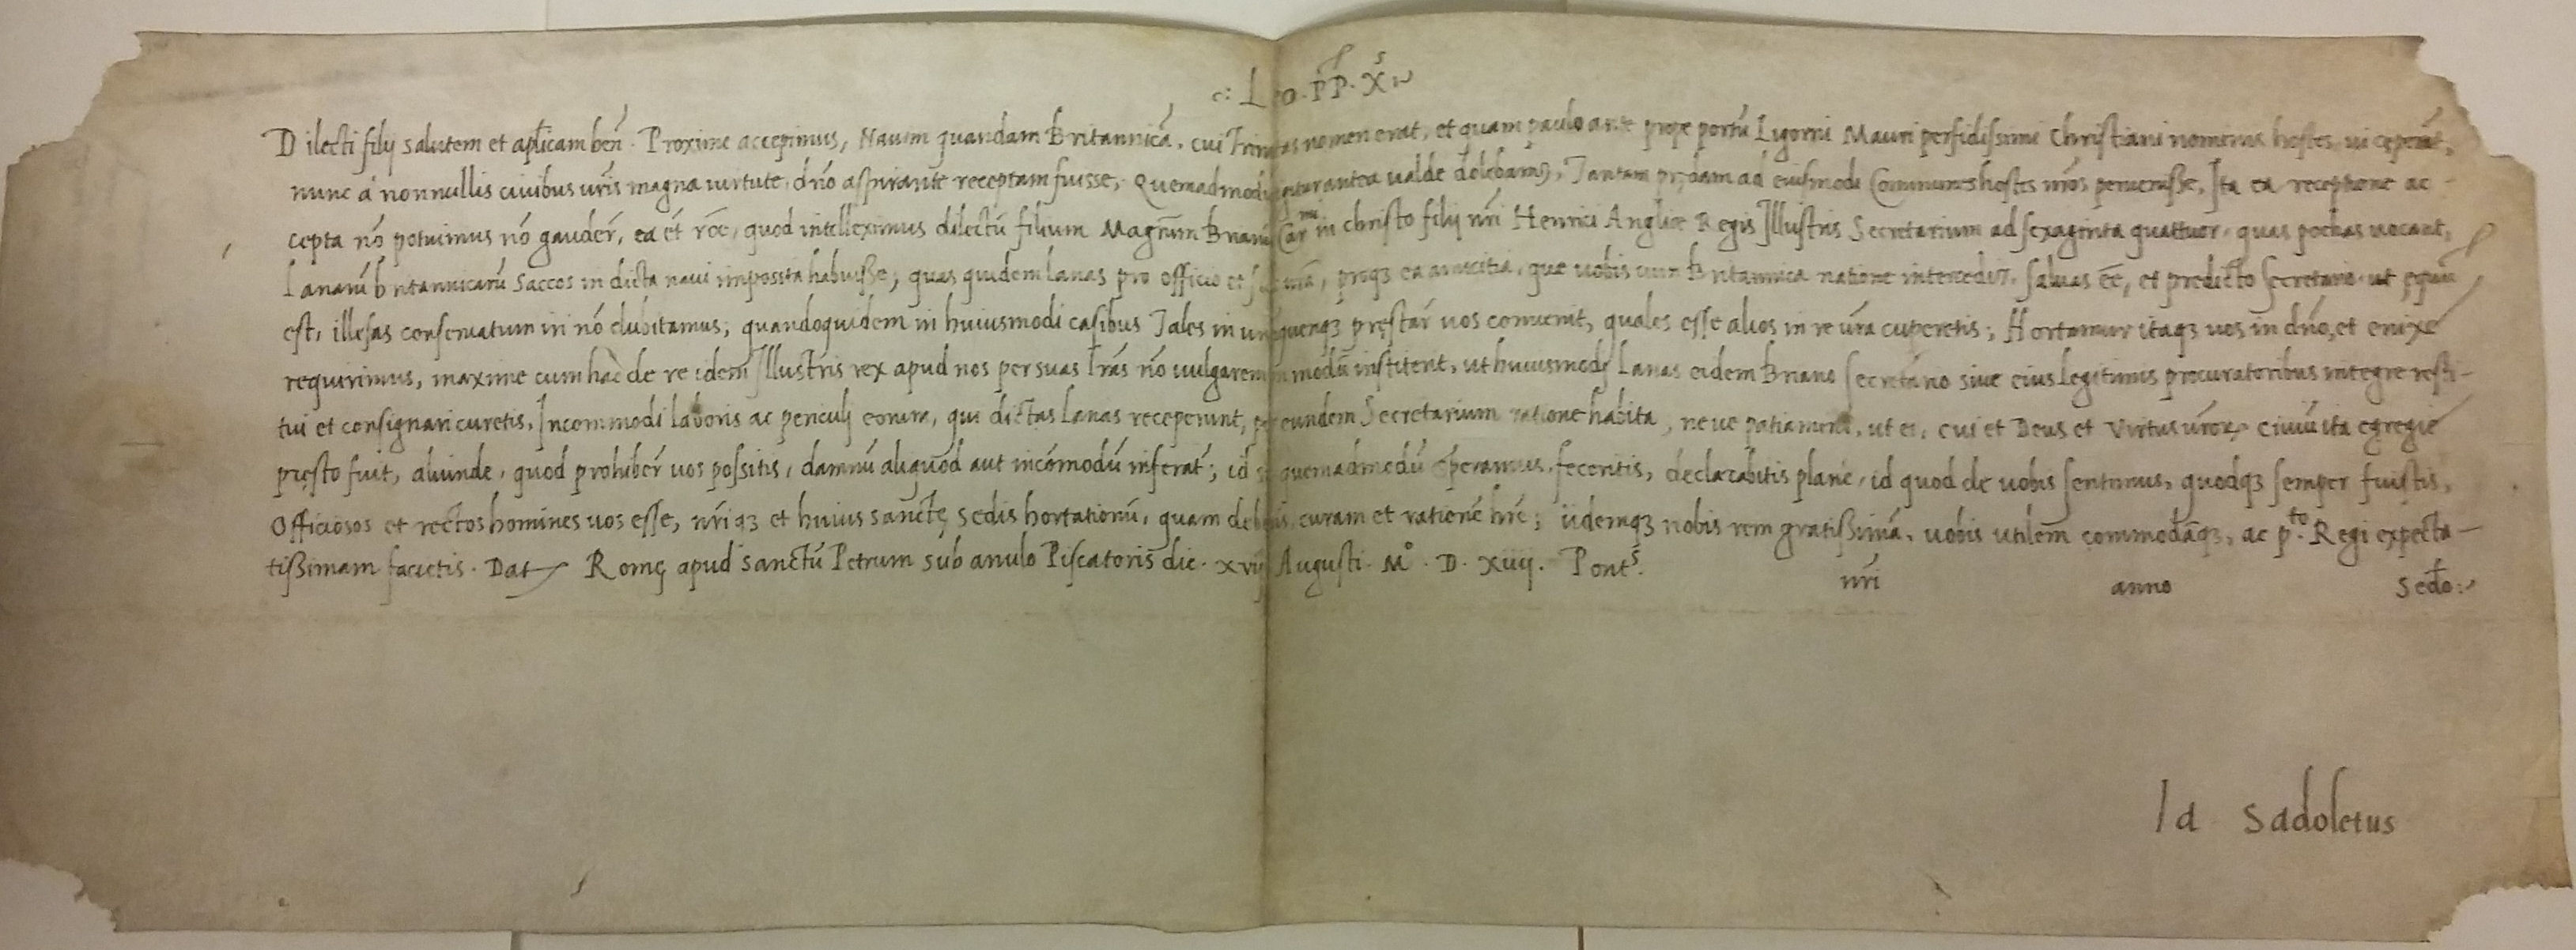 Leo. PP. X.s
Dilecti filij salutem et apl̃icam beñ. Proxime accepimus, Nauim quandam Britannicã, cui Trinitas nomen erat, et quam paulo ante prope portũ Ligorni Mauri perfidissimi Christiani nominis hostes ui ceperãt,
nunc á nonnullis ciuibus ur̃is magna uirtute, dño aspirante receptam fuisse, Quemadmodũ ualde dolebamus, Tantam prędam ad eiusmodi Communes hostes nr̃os peruenisse, Ita ea receptione ac
cepta nõ potuimus nõ gauder̃, ea et̃ rõe, quod intelleximus dilectũ filium Magr̃um Brianũ Carmi in christo filij nr̃i Henrici Angliæ Regis Illustris Secretarium ad sexaginta quattuor, quas pochas uocant,
Lanarũ britannicarũ Saccos in dicta naui imposita habuisse, quas quidem lanas pro officio et proq3 ea amicitia, que uobis cum Britannica natione intercedit, saluas eẽ, et predicto secretario, ut equũ
est, illesas conseruatum iri nõ dubitamus; quandoquidem in huiusmodi casibus Tales in unũquenq3 pręstar̃ uos conuenit, quales esse alios in re ur̃a cuperetis; Hortamur itaq3 uos in dño, et enixe
requirimus, maxime cum hac de re idem Illustris rex apud nos per suas lr̃as nõ uulgarem in modũ institerit, ut huiusmodj Lanas eidem Briano secretario siue eius legitimis procuratoribus integre resti-
tui et consignari curetis, Incommodi laboris ac periculj eorum, qui dictas lanas receperunt, per eundem Secretarium ratione habita, neue patiamini, ut ei, cui et Deus et Virtus ur̃orum Ciuiũ ita egregie
pręsto fuit, aliunde, quod prohiber̃ uos possitis, damnũ aliquod aut incõmodũ inferat̃; id si quemadmodũ speramus, feceritis, declarabitis plane, id quod de uobis sentimus, quodq3 semper fuistis,
Officiosos et rectos homines uos esse, nr̃iq3 et huius sanctę sedis hortationũ, quam debetis, curam et rationẽ hr̃e; iidemq3 nobis rem gratissimã, uobis utilem commodãq3, ac p.to Regi expecta-
tissimam facietis. Dat Romę apud sanctũ Petrum sub anulo Piscatoris die. xvij Augusti. M°. D. xiiij. Pont.s nr̃i anno Sedo
Ia Sadoletus